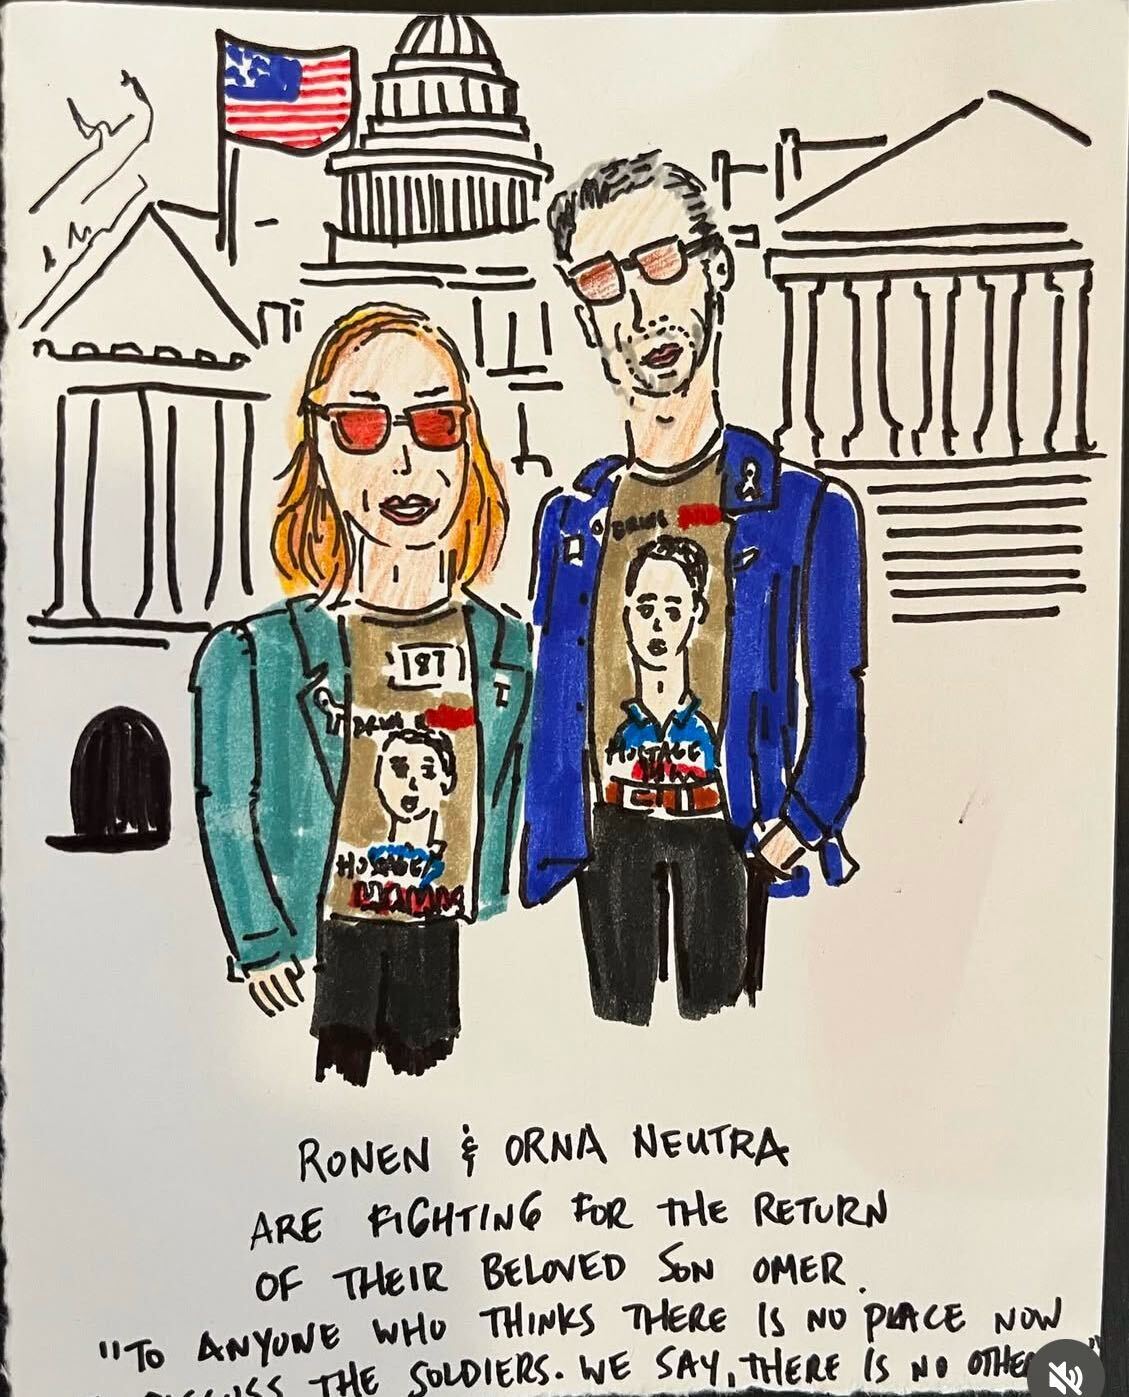 187
HOSTAGE
HOSTAGE
RONEN & ORNA NEUTRA
ARE FIGHTING FOR THE RETURN
OF THEIR BELOVED SON OMER.
"TO ANYONE WHO THINKS THERE IS NO PLACE NOW
THE SOLDIERS. WE SAY, THERE IS NO